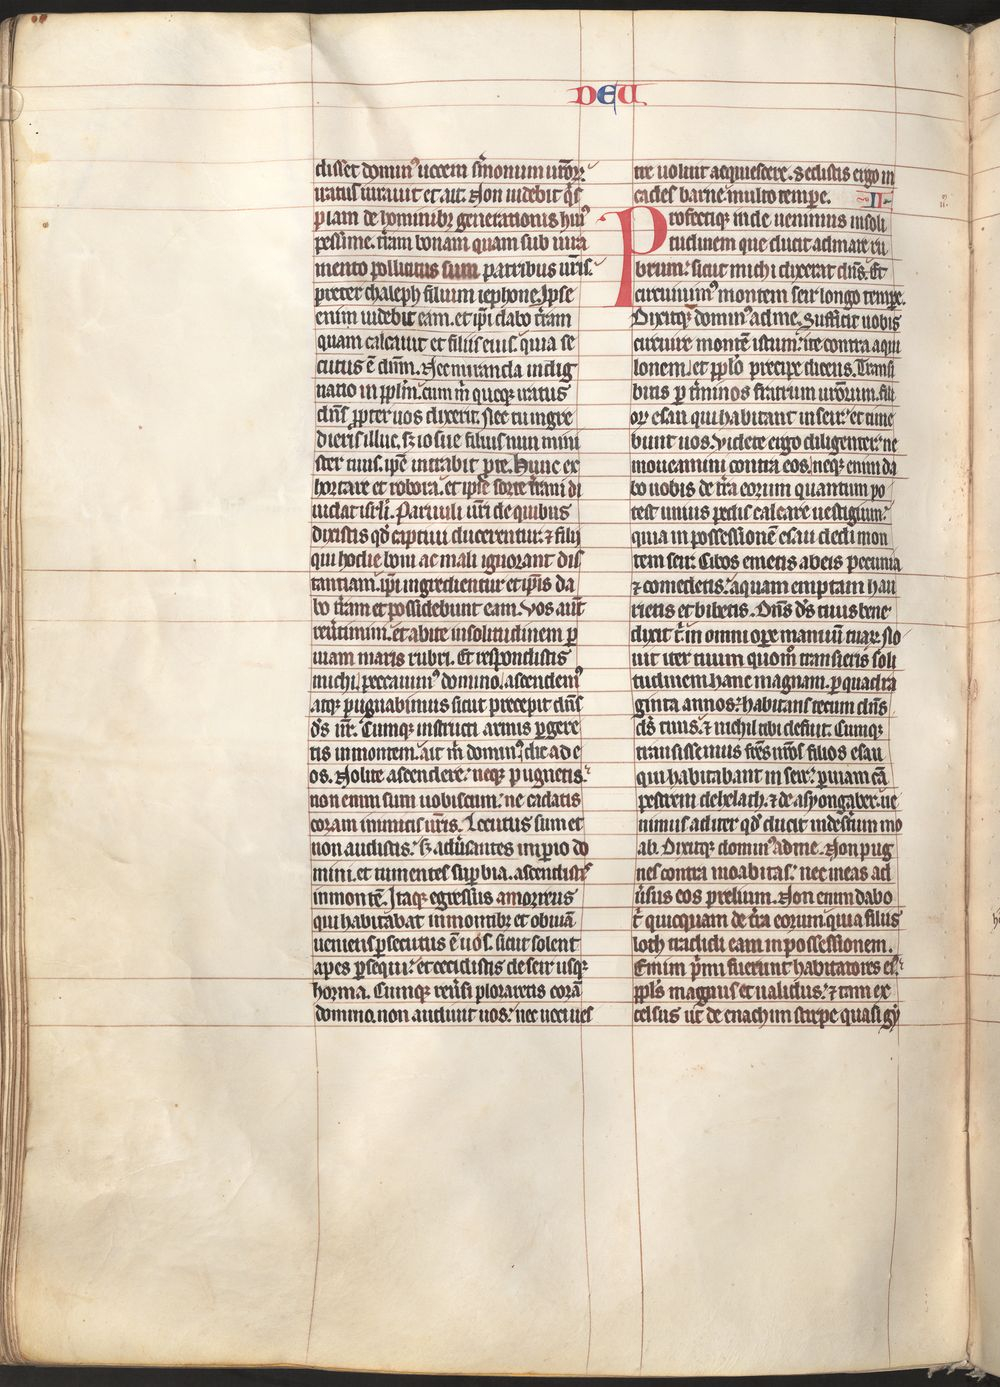 DEU
disset dominꝰ uocem sermonum uestrorum
iratus iurauit et ait. Non uidebit qͥs
ꝑiam de hominibꝫ generationis huiꝰ
pessime. t̄ram bonam quam sub iura
mento pollicitus sum patribus ur̄is.
preter chaleph filium iephone. Ipse
enim uidebit eam. et ip̄i dabo t̄ram
quam calcauit et filiis eius. quia se
cutus ē dn̄m. Nec miranda indig
natio in ppl̄m. cum m̄ quoqꝫ iratus
dn̄s ꝓpter uos dixerit. Nec tu ingre
dieris illuc. sꝫ iosue filius nun mini
ster tuus. ip̄e intrabit ꝓ te. Hunc ex
hortare et robora. et ipse sorte t̄ram di
uidat isrl̄i. Paruuli ur̄i de quibus
dixistis qd̄ captiui ducerentur. ⁊ filii
qui hodie boni ac mali ignorant dis
tantiam. ip̄i ingredientur et ip̄is da
bo t̄ram et possidebunt eam. Uos aut̄
reut̄imini. et abite in solitudinem ꝑ
uiam maris rubri. Et respondistis
michi. peccauimꝰ domino. ascendemꝰ
atqꝫ pugnabimus sicut precepit dn̄s
ds̄ nr̄. Cumqꝫ instructi armis ꝑgere
tis in montem. ait m̄ dominꝰ. dic ad e
os. Nolite ascendere. neqꝫ pugnetis.
non enim sum uobiscum. ne cadatis
coram inimicis ur̄is. Locutus sum et
non audistis. sꝫ adūsantes imꝑio do
mini. et tumentes suꝑbia. ascendistis
in montē. Itaqꝫ egressus amorreus
qui habitabat in montibꝫ et obuiā
ueniens ꝑsecutus ē uos. sicut solent
apes ꝑsequi. et cecidistis de seir usqꝫ
horma. Cumqꝫ reūsi ploraretis corā
domino. non audiuit uos. nec uoci ues
tre uoluit acquiescere. Sedistis ergo in
cades barne multo tempe. II.
Profectiqꝫ inde uenimus in soli
tudinem que ducit ad mare ru
brum. sicut michi dixerat dn̄s. Et
circuiuimꝰ montem seir longo tempe.
Dixitqꝫ dominꝰ ad me. Sufficit uobis
circuire montē istum. ite contra aqui
lonem. et ppl̄o precipe dicens. Transi
bitis ꝑ t̄minos fratrum ur̄orum. fili
oꝝ esau qui habitant in seir. et time
bunt uos. Uidete ergo diligenter. ne
moueamini contra eos. neqꝫ enim da
bo uobis de t̄ra eorum quantum po
test unius pedis calcare uestigium.
quia in possessionē esau dedi mon
tem seir. Cibos emetis ab eis pecunia
⁊ comedetis. aquam emptam hau
rietis et bibetis. Dn̄s ds̄ tuus bene
dixit t̄ in omni oꝑe manuū tuaꝝ. No
uit iter tuum quom̊ transieris soli
tudinem hanc magnam. ꝑ quadra
ginta annos. habitans tecum dn̄s
ds̄ tuus. ⁊ nichil tibi defuit. Cumqꝫ
transissemus fr̄es nr̄os filios esau
qui habitabant in seir. ꝑ uiam cā
pestrem de helath. ⁊ de asyongaber. ue
nimus ad iter qd̄ ducit in desertum mo
ab. Dixitqꝫ dominꝰ ad me. Non pug
nes contra moabitas. nec ineas ad
ūsus eos prelium. Non enim dabo
t̄ quicquam de t̄ra eorum. quia filiis
loth tradidi eam in possessionem.
Emim p̄mi fuerunt habitatores eiꝰ.
ppl̄s magnus et ualidus. ⁊ tam ex
celsus ut de enachim stirpe quasi gy